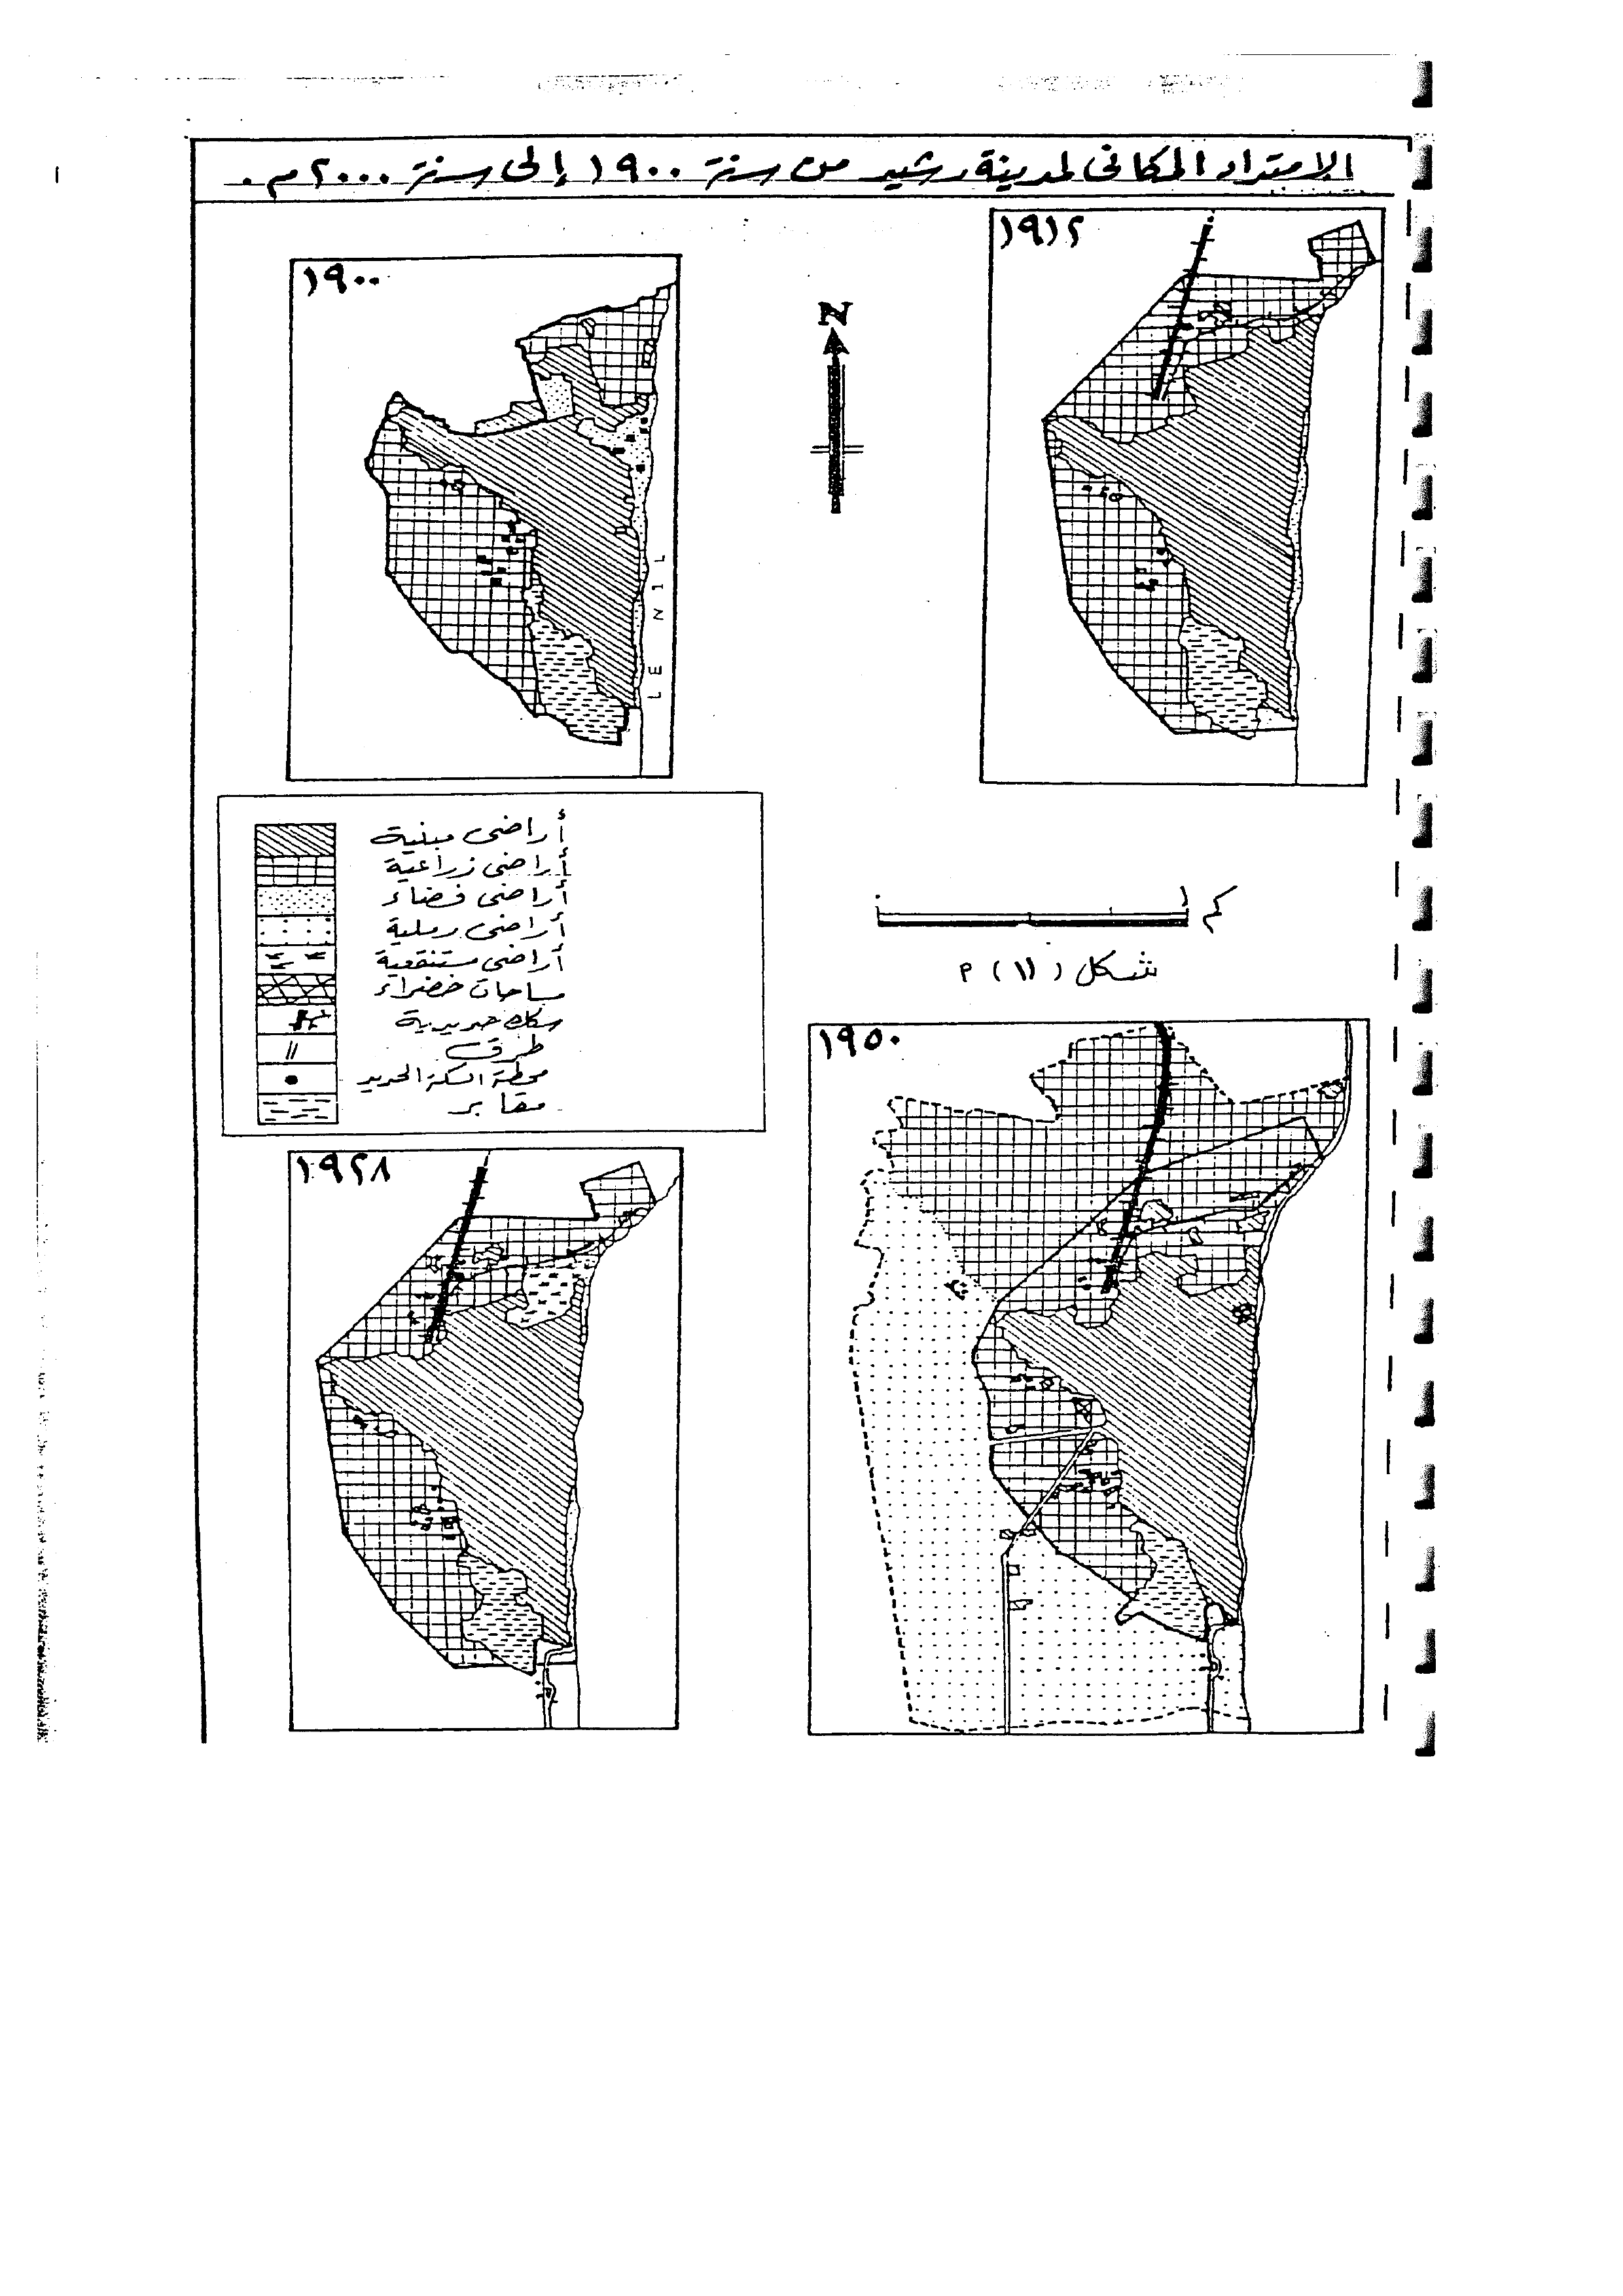 الامتداد المكانى لمدينة رشيد من سنة ١٩٠٠ إلى سنة ٢٠٠٠م.
١٩١٢
١٩٠٠
N
LE NIL
أراضى مبنية
أراضى زراعية
أراضى فضاء
أراضى رملية
أراضى مستنقعية
مساحات خضراء
سكك حديدية
طرق
محطة السكة الحديد
مقابر
٠ ١ كم
شكل (١١) م
١٩٥٠
١٩٢٨